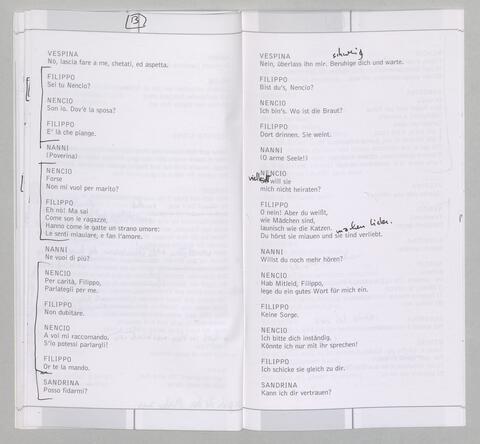 13
VESPINA
No, lascia fare a me, chetati, ed aspetta.
FILIPPO
Sei tu Nencio?
NENCIO
Son io. Dov'è la sposa?
FILIPPO
E' là che piange.
NANNI
(Poverina)
NENCIO
Forse
Non mi vuol per marito?
FILIPPO
Eh nò! Ma sai
Come son le ragazze,
Hanno come le gatte un strano umore:
Le senti miaulare, e fan l'amore.
NANNI
Ne vuoi di più?
NENCIO
Per carità, Filippo,
Parlategli per me.
FILIPPO
Non dubitare.
NENCIO
A voi mi raccomando.
S'io potessi parlargli!
FILIPPO
Or te la mando.
SANDRINA
Posso fidarmi?
VESPINA
schweig
Nein, überlass ihn mir. Beruhige dich und warte.
FILIPPO
Bist du's, Nencio?
NENCIO
Ich bin's. Wo ist die Braut?
FILIPPO
Dort drinnen. Sie weint.
NANNI
(O arme Seele!)
NENCIO
vielleicht will sie
mich nicht heiraten?
FILIPPO
O nein! Aber du weißt,
wie Mädchen sind,
launisch wie die Katzen.
machen Liebe.
Du hörst sie miauen und sie sind verliebt.
NANNI
Willst du noch mehr hören?
NENCIO
Hab Mitleid, Filippo,
lege du ein gutes Wort für mich ein.
FILIPPO
Keine Sorge.
NENCIO
Ich bitte dich inständig.
Könnte ich nur mit ihr sprechen!
FILIPPO
Ich schicke sie gleich zu dir.
SANDRINA
Kann ich dir vertrauen?